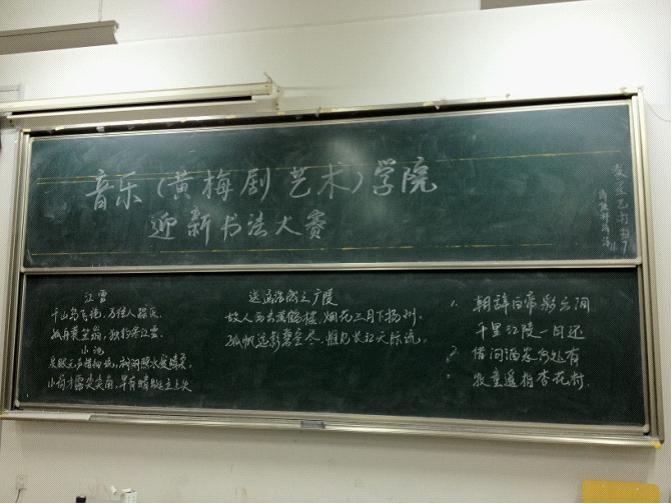 音乐(黄梅剧艺术)学院
迎新书法大赛
江雪
千山鸟飞绝,万径人踪灭.
孤舟蓑笠翁,独钓寒江雪.
小池
泉眼无声惜细流,树阴照水爱晴柔,
小荷才露尖尖角,早有蜻蜓立上头
送孟浩然之广陵
故人西去黄鹤楼,烟花三月下扬州.
孤帆远影碧空尽,惟见长江天际流.
1. 朝辞白帝彩云间
千里江陵一日还
2. 借问酒家何处有
牧童遥指杏花村.